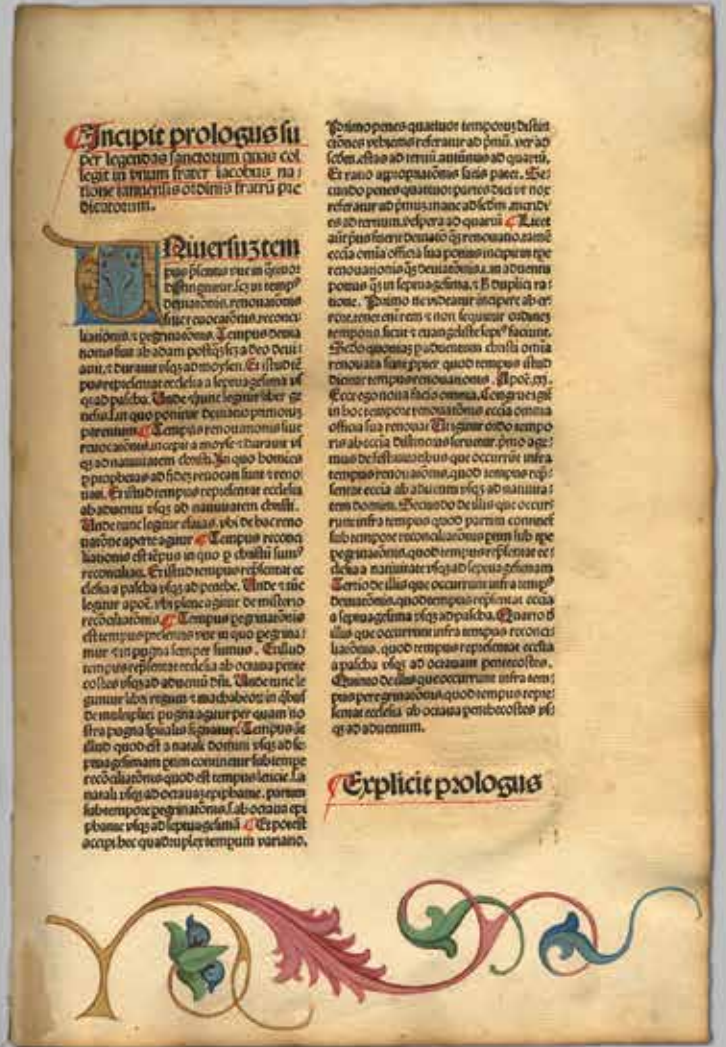 Incipit prologus su
per legendas sanctorum quas col
legit in vnum frater iacobus na
tione ianuensis ordinis fratrū pre
dicatorum.
Niuersuz tem
pus pn̄tis vite in
distinguitur. in temp⁹
deuiatōnis. renouationis
siue reuocatōnis. reconci
liationis. ⁊ pegrinatōnis. Tempus deuia
tionis fuit ab adam a deo deui
auit. ⁊ durauit vsq̄ ad moysen. Et istud tē
pus representat ecclesia a septuagesima vs
q̄ ad pascha. Vnde tunc legitur liber ge
nesis. in quo ponitur deuiatio primoruz
parentum. Tempus renouationis siue
reuocatōnis. incepit a moyse ⁊ durauit vs
q̄ ad natiuitatem christi. In quo homines
p prophetas ad fidez reuocati sunt ⁊ reno
uati. Et istud tempus representat ecclesia
ab aduentu vsq̄ ad natiuitatem christi.
Vnde tunc legitur vbi de hac reno
uatōne aperte agitur Tempus reconci
liationis est tēpus in quo p christū sum⁹
reconciliati. Et istud tempus rep̄sentat ec
clesia a pascha vsq̄ ad Vnde ⁊ tūc
legitur apoč. vbi plene agitur de misterio
recōciliatōnis. Tempus pegrinatōnis
est tempus presentis vite in quo pegrina
mur ⁊ in pugna semper sumus. Et illud
tempus rep̄sentat ecclesia ab octaua pente
costes vsq̄ ad aduentū dn̄i. Vnde tunc le
guntur libri regum ⁊ machabeoꝝ in
de multiplici pugna agitur per quam no
stra pugna spūalis signatur. Tempus
illud quod est a natale domini vsq̄ ad se
ptuagesimam ptim continetur sub tempe
recōciliatōnis quod est tempus leticie. a
natali vsq̄ ad octauas epiphanie. partim
sub tempore pegrinatōnis. ab octaua epi
phanie vsq̄ ad septuagesimā Et potest
accipi hec quadruplex tempum variatio.
Primo penes quatuor temporuz distin
ctiones vt hiems referatur ad pmū. ver ad
scdm. estas ad terciū. autūnus ad quartū.
Et ratio appropriatōnis satis patet. Se
cundo penes quattuor partes diei vt nox
referatur ad pmuz. mane ad scdm. meridi
es ad tertium. vespera ad quartū Licet
aūt prius fuerit deuiatō q̄ renouatio. tamē
eccia omia officia sua potius incipit in tpe
renouationis q̄ deuiatōnis. in aduentu
potius q̄ in septuagesima. duplici ra
tione. Primo ne videatur incipere ab er
rore. tenet enī rem ⁊ non sequitur ordinez
temporis. sicut ⁊ euangeliste sepe faciunt.
Scdo quoniaz p aduentum christi omia
renouata sunt ppter quod tempus istud
dicitur tempus renouationis. Apoč.
Ecce ego noua facio omnia. Congrue igit
in hoc tempore renouatōnis eccia omnia
officia sua renouat Vt igitur ordo tempo
ris ab eccia distinctus seruetur. pmo age
mus de festiuitatibus que occurrūt infra
tempus renouatōnis. quod tempus rep̄
sentat eccia ab aduentu vsq̄ ad natiuita
tem domini. Secundo de illis que occur
runt infra tempus quod partim continet
sub tempore reconciliatōnis ptim sub tpe
pegrinatōnis. quod tempus rep̄sentat ec
clesia a natiuitate vsq̄ ad septuagesimam
Tertio de illis que occurrunt infra temp⁹
deuiatōnis. quod tempus rep̄sentat eccia
a septuagesima vsq̄ ad pascha. Quarto d
illis que occurrunt infra tempus reconci
liatōnis. quod tempus representat ecclesia
a pascha vsq̄ ad octauam pentecostes.
Quinto de illis que occurrunt infra tem
pus peregrinatōnis. quod tempus repre
sentat ecclesia ab octaua penthecostes vs
q̄ ad aduentum.
Explicit prologus